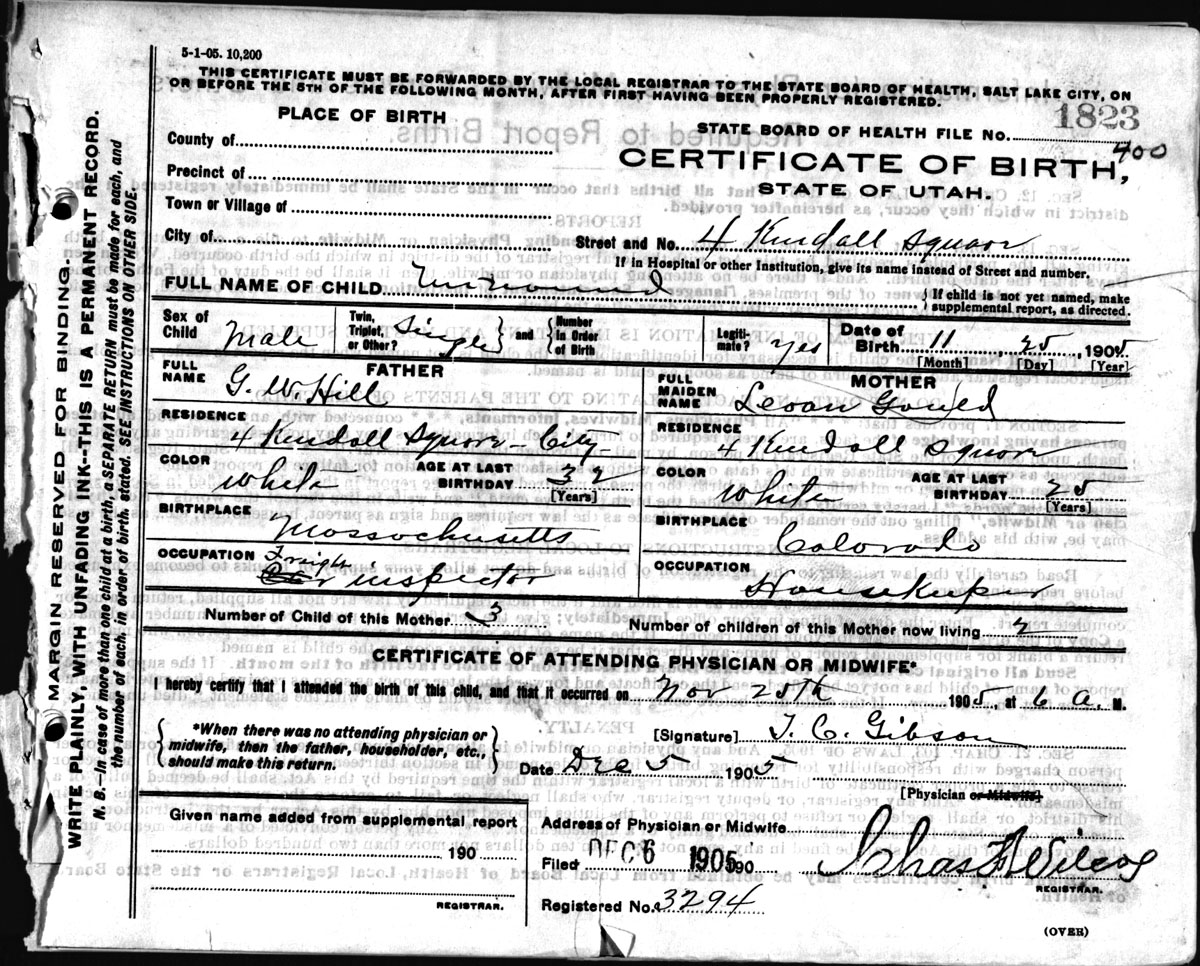 5-1-05. 10,200
THIS CERTIFICATE MUST BE FORWARDED BY THE LOCAL REGISTRAR TO THE STATE BOARD OF HEALTH, SALT LAKE CITY, ON
OR BEFORE THE 5TH OF THE FOLLOWING MONTH, AFTER FIRST HAVING BEEN PROPERLY REGISTERED.
1823
PLACE OF BIRTH
STATE BOARD OF HEALTH FILE NO.
400
County of
CERTIFICATE OF BIRTH,
Precinct of
STATE OF UTAH.
Town or Village of
City of
Street and No. 4 Kendall Squaor
If in Hospital or other Institution, give its name instead of Street and number.
FULL NAME OF CHILD Unnamed
{ If child is not yet named, make supplemental report, as directed.
Sex of Child Male
Twin, Triplet, or Other? Single } and { Number in Order of Birth
Legitimate? yes
Date of Birth 11 25 1905
[Month] [Day] [Year]
FATHER
FULL NAME G. W. Hill
RESIDENCE
4 Kendall Squaor City
COLOR White
AGE AT LAST BIRTHDAY 32
[Years]
BIRTHPLACE
Massachusetts
OCCUPATION
Freight inspector
MOTHER
FULL MAIDEN NAME Leoan Gould
RESIDENCE
4 Kendall Squaor
COLOR White
AGE AT LAST BIRTHDAY 25
[Years]
BIRTHPLACE
Colorado
OCCUPATION
Housekeeper
Number of Child of this Mother 3
Number of children of this Mother now living 2
CERTIFICATE OF ATTENDING PHYSICIAN OR MIDWIFE*
I hereby certify that I attended the birth of this child, and that it occurred on Nov 25th 1905, at 6 a. M.
{ *When there was no attending physician or midwife, then the father, householder, etc., should make this return. }
[Signature] T. C. Gibson
Date Dec 5 1905
[Physician or Midwife]
Given name added from supplemental report
190
REGISTRAR.
Address of Physician or Midwife
Filed DEC 6 1905 190
Chas F Wilcox
REGISTRAR.
Registered No. 3294
(OVER)
MARGIN RESERVED FOR BINDING.
WRITE PLAINLY, WITH UNFADING INK--THIS IS A PERMANENT RECORD.
N. B.--In case of more than one child at a birth, a SEPARATE RETURN must be made for each, and
the number of each, in order of birth, stated. SEE INSTRUCTIONS ON OTHER SIDE.